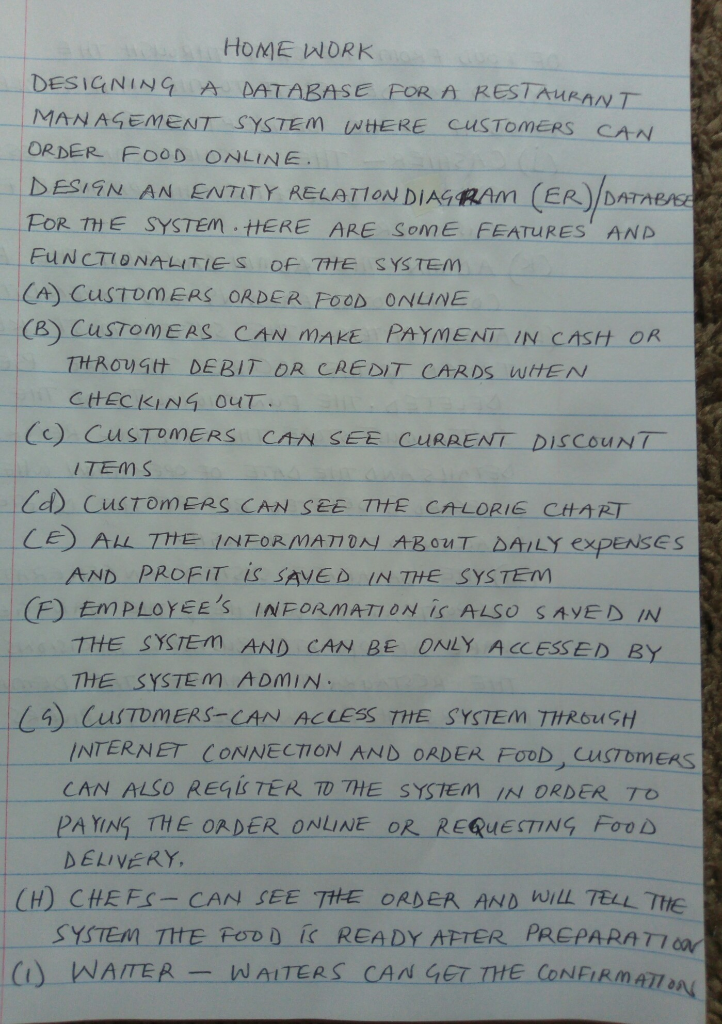 HOME WORK
DESIGNING A DATABASE FOR A RESTAURANT
MANAGEMENT SYSTEM WHERE CUSTOMERS CAN
ORDER FOOD ONLINE.
DESIGN AN ENTITY RELATION DIAGRAM (ER)/DATABASE
FOR THE SYSTEM. HERE ARE SOME FEATURES AND
FUNCTIONALITIES OF THE SYSTEM
(A) CUSTOMERS ORDER FOOD ONLINE
(B) CUSTOMERS CAN MAKE PAYMENT IN CASH OR
THROUGH DEBIT OR CREDIT CARDS WHEN
CHECKING OUT.
(C) CUSTOMERS CAN SEE CURRENT DISCOUNT
ITEMS
(d) CUSTOMERS CAN SEE THE CALORIE CHART
(E) ALL THE INFORMATION ABOUT DAILY EXPENSES
AND PROFIT IS SAVED IN THE SYSTEM
(F) EMPLOYEE'S INFORMATION IS ALSO SAVED IN
THE SYSTEM AND CAN BE ONLY ACCESSED BY
THE SYSTEM ADMIN.
(G) CUSTOMERS-CAN ACCESS THE SYSTEM THROUGH
INTERNET CONNECTION AND ORDER FOOD, CUSTOMERS
CAN ALSO REGISTER TO THE SYSTEM IN ORDER TO
PAYING THE ORDER ONLINE OR REQUESTING FOOD
DELIVERY.
(H) CHEFS- CAN SEE THE ORDER AND WILL TELL THE
SYSTEM THE FOOD IS READY AFTER PREPARATION
(I) WAITER - WAITERS CAN GET THE CONFIRMATION